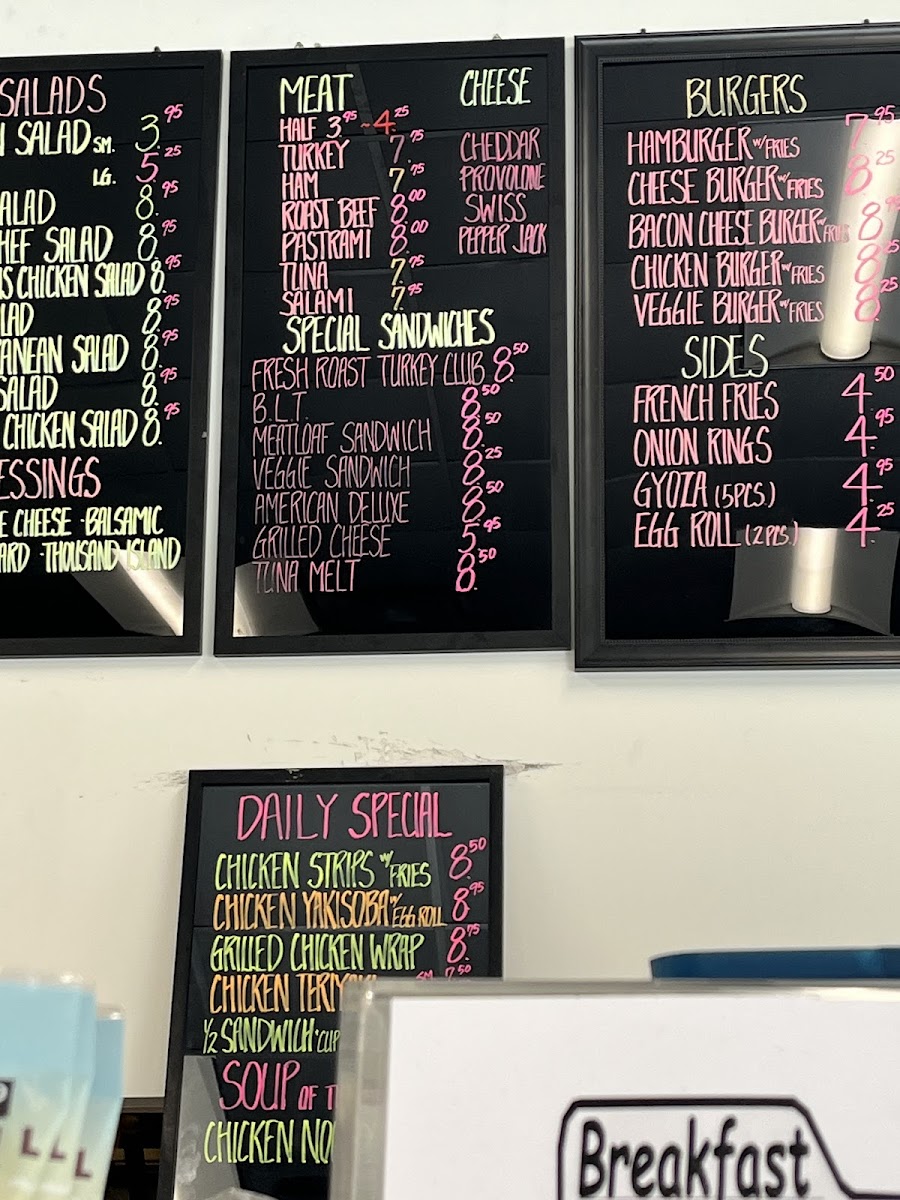 SALADS
SALAD SM. 3.95
LG. 5.25
ALAD 8.95
HEF SALAD 8.95
S CHICKEN SALAD 8.95
LAD 8.95
ANEAN SALAD 8.95
SALAD 8.95
CHICKEN SALAD 8.95
ESSINGS
E CHEESE · BALSAMIC
ARD · THOUSAND ISLAND
MEAT
HALF 3.95 ~ 4.25
TURKEY 7.75
HAM 7.75
ROAST BEEF 8.00
PASTRAMI 8.00
TUNA 7.75
SALAMI 7.95
CHEESE
CHEDDAR
PROVOLONE
SWISS
PEPPER JACK
SPECIAL SANDWICHES
FRESH ROAST TURKEY CLUB 8.50
B.L.T. 8.50
MEATLOAF SANDWICH 8.50
VEGGIE SANDWICH 8.25
AMERICAN DELUXE 8.50
GRILLED CHEESE 5.95
TUNA MELT 8.50
BURGERS
HAMBURGER W/FRIES 7.95
CHEESE BURGER W/FRIES 8.25
BACON CHEESE BURGER W/FRIES 8.95
CHICKEN BURGER W/FRIES 8.25
VEGGIE BURGER W/FRIES 8.25
SIDES
FRENCH FRIES 4.50
ONION RINGS 4.95
GYOZA (5PCS.) 4.95
EGG ROLL (2PCS.) 4.25
DAILY SPECIAL
CHICKEN STRIPS W/FRIES 8.50
CHICKEN YAKISOBA W/EGG ROLL 8.95
GRILLED CHICKEN WRAP 8.75
CHICKEN TERIYAKI SM 7.50
1/2 SANDWICH · CUP
SOUP OF T
CHICKEN NO
Breakfast